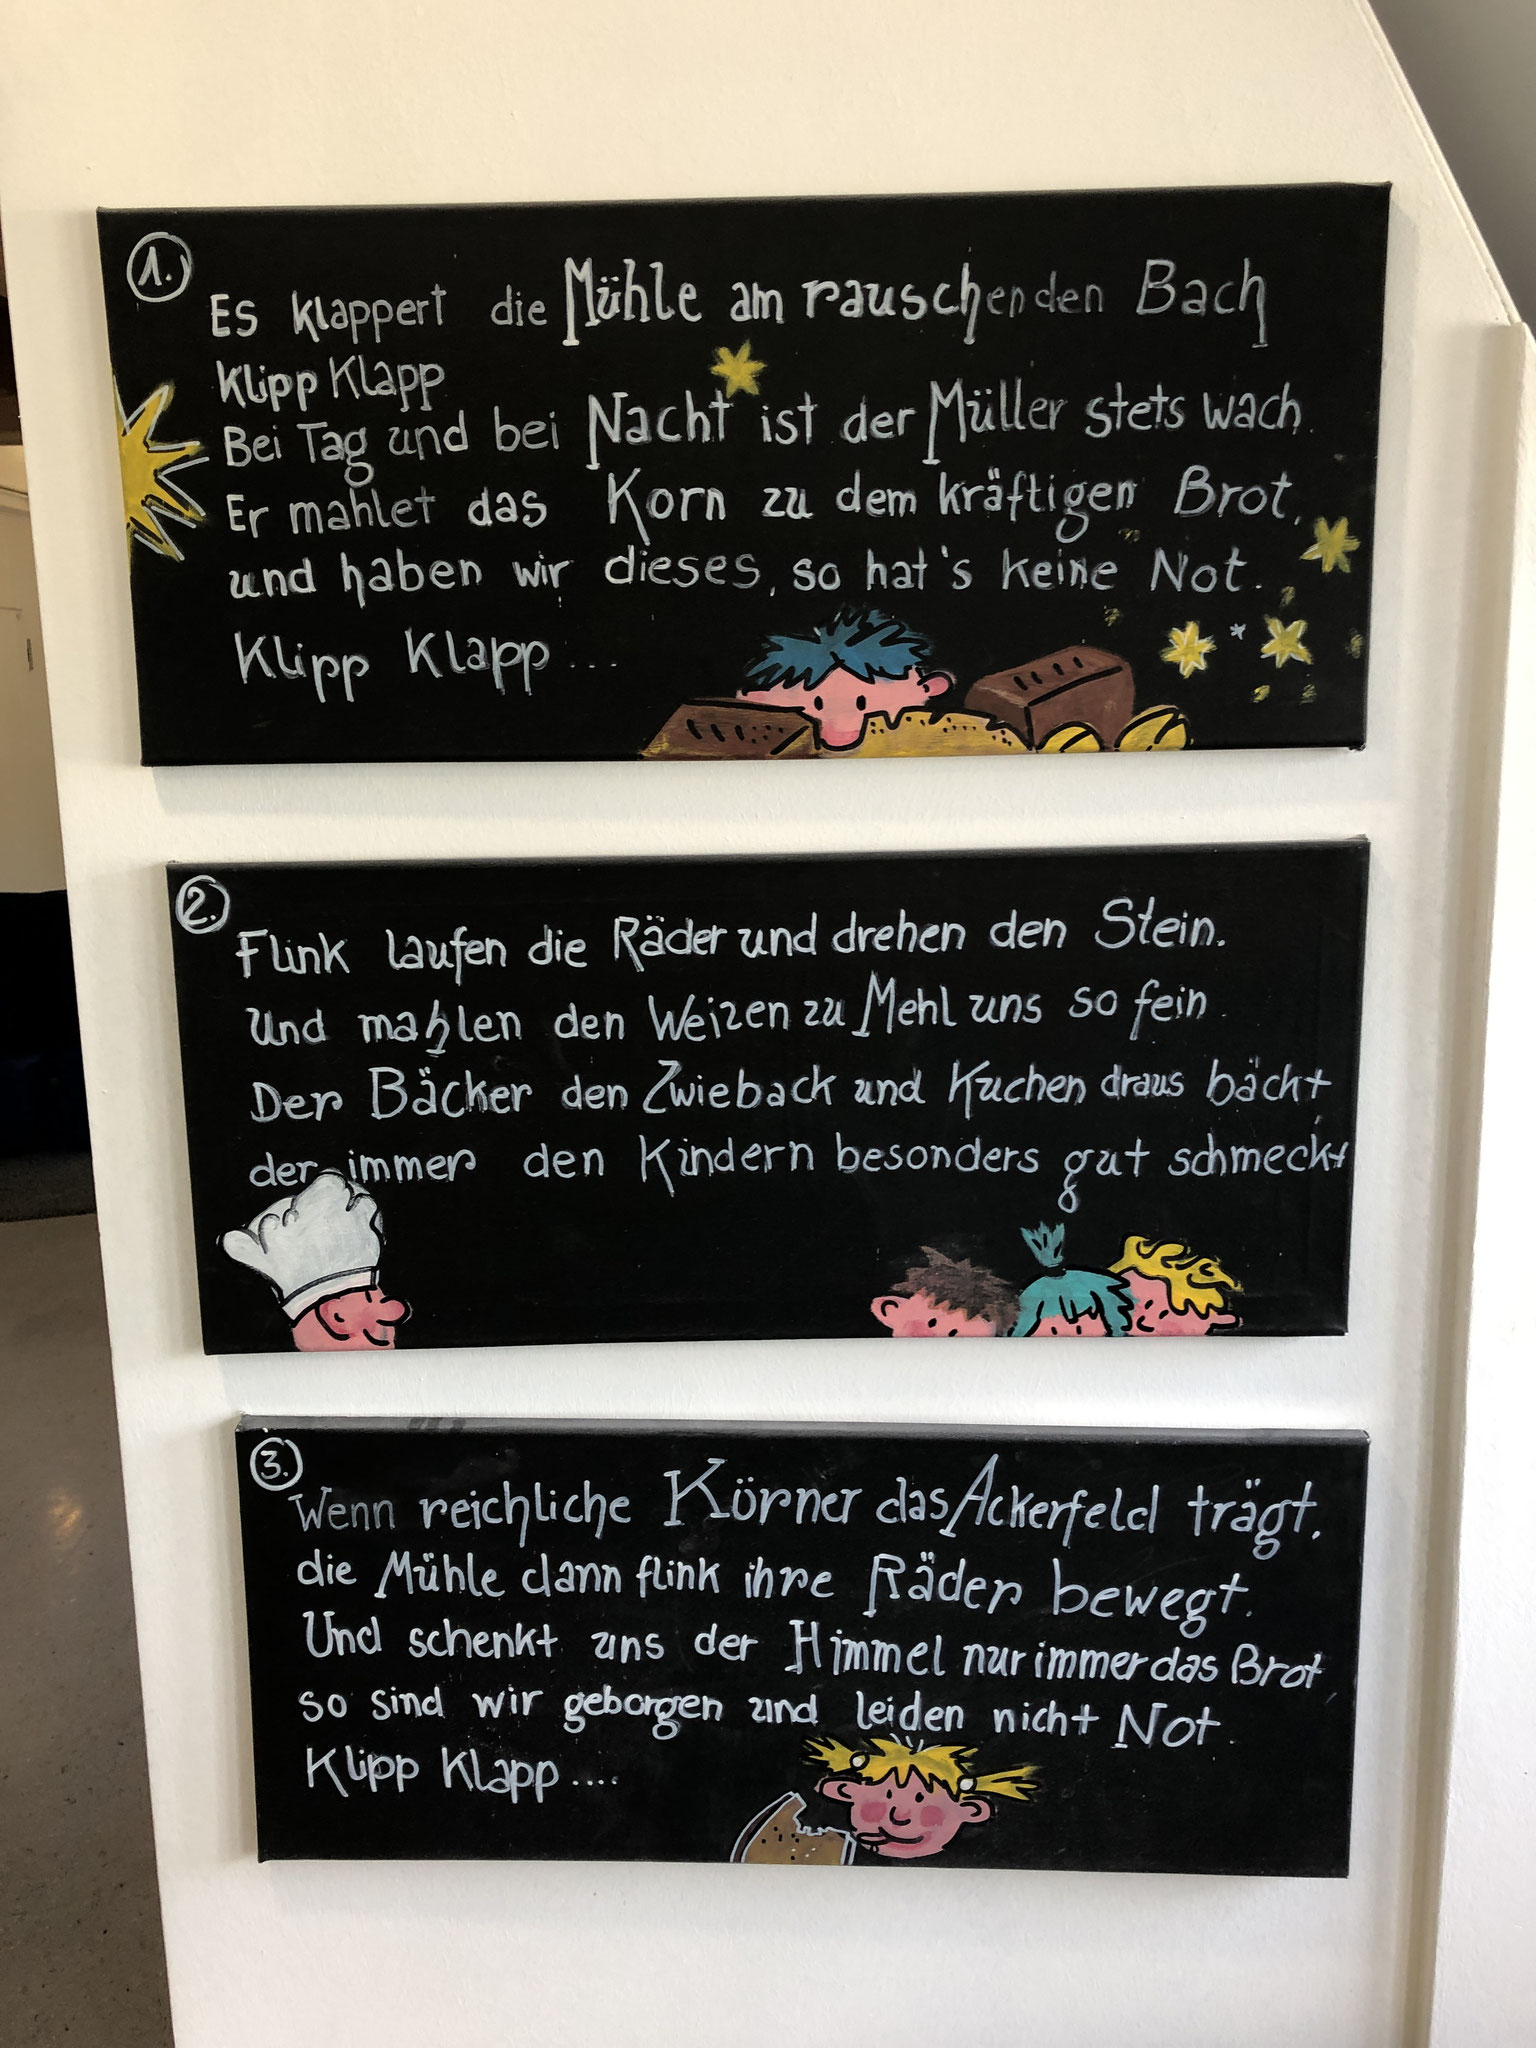 1.
Es klappert die Mühle am rauschenden Bach
Klipp Klapp
Bei Tag und bei Nacht ist der Müller stets wach.
Er mahlet das Korn zu dem kräftigen Brot,
und haben wir dieses, so hat's keine Not.
Klipp Klapp ...
2.
Flink laufen die Räder und drehen den Stein.
Und mahlen den Weizen zu Mehl uns so fein.
Der Bäcker den Zwieback und Kuchen draus bäckt,
der immer den Kindern besonders gut schmeckt
3.
Wenn reichliche Körner das Ackerfeld trägt,
die Mühle dann flink ihre Räder bewegt.
Und schenkt uns der Himmel nur immer das Brot,
so sind wir geborgen und leiden nicht Not.
Klipp Klapp ....